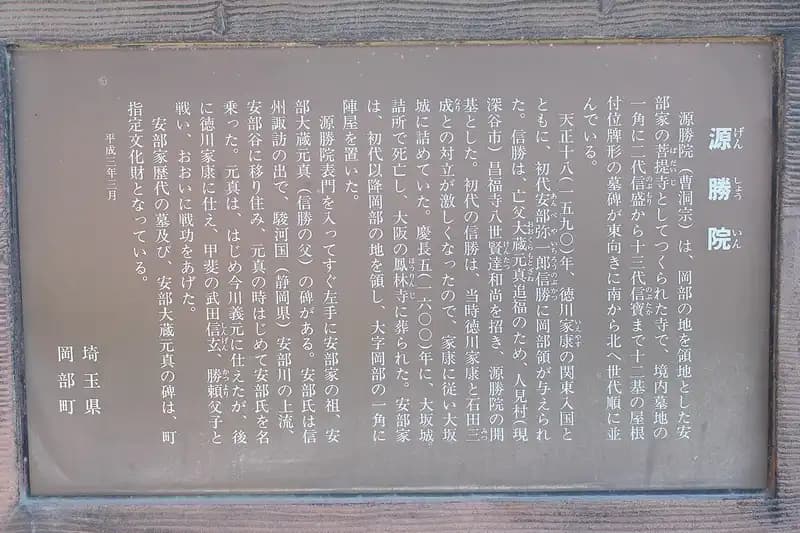 源勝院
源勝院(曹洞宗)は、岡部の地を領地とした安
部家の菩提寺としてつくられた寺で、境内墓地の
一角に二代信盛から十三代信寶まで十二基の屋根
付位牌形の墓碑が東向きに南から北へ世代順に並
んでいる。
天正十八(一五九〇)年、徳川家康の関東入国と
ともに、初代安部弥一郎信勝に岡部領が与えられ
た。信勝は、亡父大蔵元真追福のため、人見村(現
深谷市)昌福寺八世賢達和尚を招き、源勝院の開
基とした。初代の信勝は、当時徳川家康と石田三
成との対立が激しくなったので、家康に従い大坂
城に詰めていた。慶長五(一六〇〇)年に、大坂城
詰所で死亡し、大阪の鳳林寺に葬られた。安部家
は、初代以降岡部の地を領し、大字岡部の一角に
陣屋を置いた。
源勝院表門を入ってすぐ左手に安部家の祖、安
部大蔵元真(信勝の父)の碑がある。安部氏は信
州諏訪の出で、駿河国(静岡県)安部川の上流、
安部谷に移り住み、元真の時はじめて安部氏を名
乗った。元真は、はじめ今川義元に仕えたが、後
に徳川家康に仕え、甲斐の武田信玄、勝頼父子と
戦い、おおいに戦功をあげた。
安部家歴代の墓及び、安部大蔵元真の碑は、町
指定文化財となっている。
平成三年三月
埼玉県
岡部町